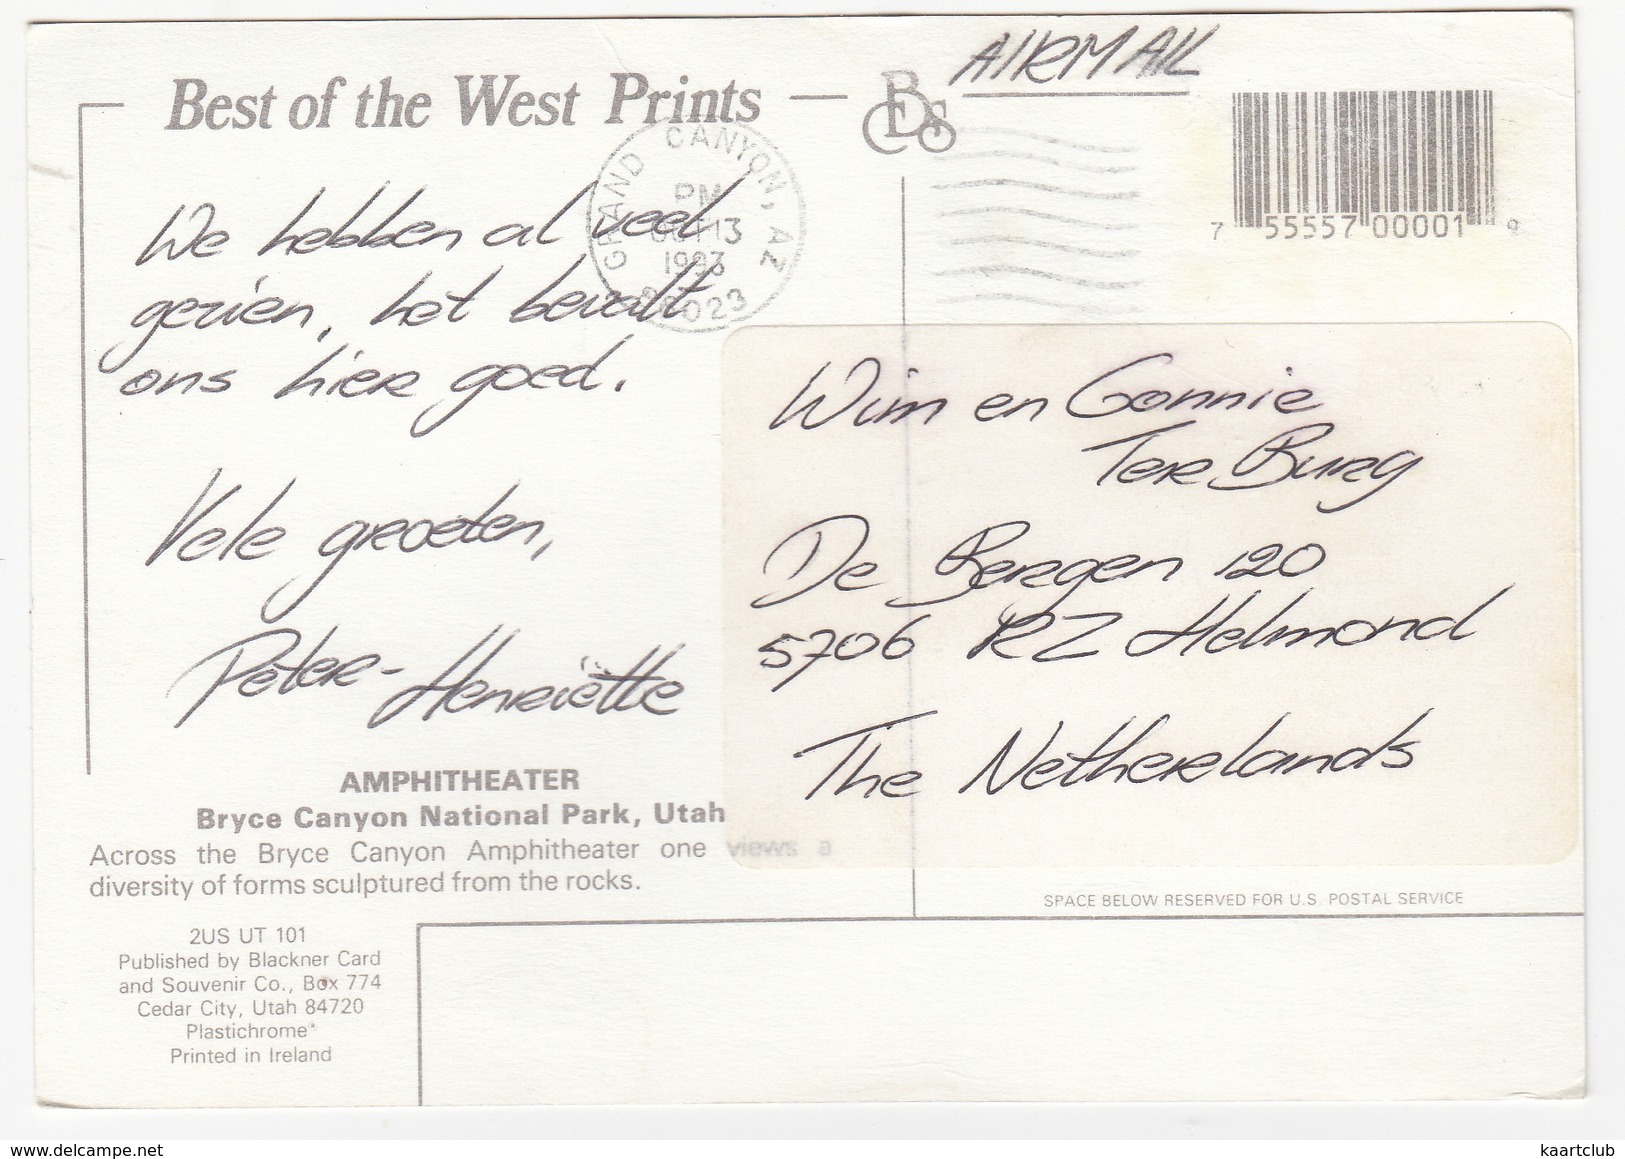 Best of the West Prints
BCDS
AIRMAIL
7 55557 00001 9
GRAND CANYON, AZ
PM
OCT 13
1993
86023
We hebben al veel
gezien, het bevalt
ons hier goed.
Vele groeten,
Peter-Henriëtte
Wim en Gonnie
Ter Burg
De Bergen 120
5706 RZ Helmond
The Netherlands
AMPHITHEATER
Bryce Canyon National Park, Utah
Across the Bryce Canyon Amphitheater one views a
diversity of forms sculptured from the rocks.
SPACE BELOW RESERVED FOR U.S. POSTAL SERVICE
2US UT 101
Published by Blackner Card
and Souvenir Co., Box 774
Cedar City, Utah 84720
Plastichrome®
Printed in Ireland
kaartclub